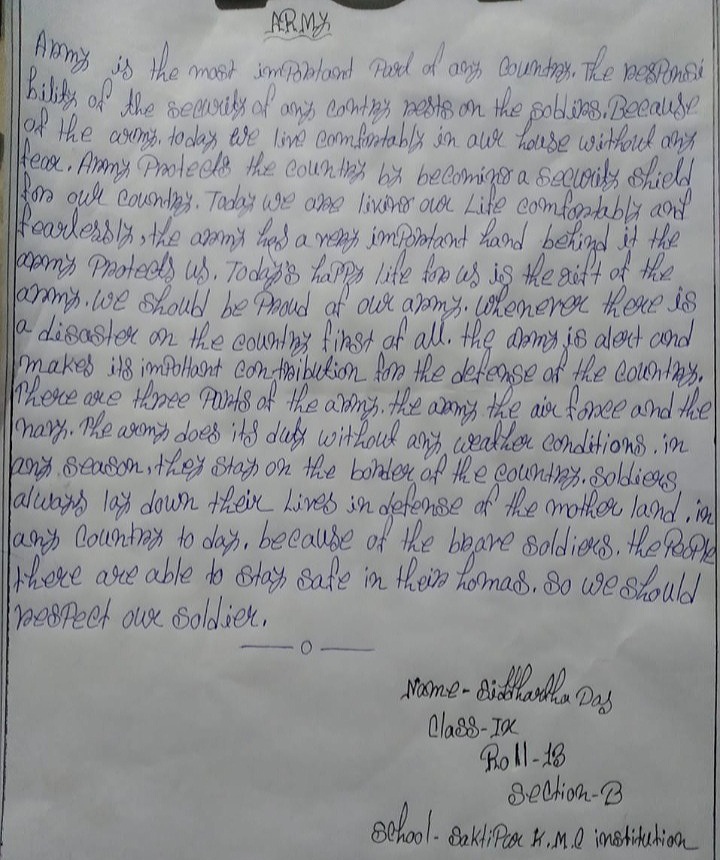 ARMY
Army is the most important Pard of any Country. The responsi
bility of the security of any contry rests on the soldirs. Because
of the army. today we live comfortably in our house without any
fear. Army Protects the country by becoming a security shield
for our country. Today we are living our Life comfortably and
fearlessly, the army has a very important hand behind it the
army Protects us. Today's happy life for us is the gift of the
army. we should be Proud of our army. Whenever there is
a disaster on the country first of all. the army is alert and
makes its impottant contribution for the defense of the country.
There are three Parts of the army. the army the air force and the
navy. The army does its duty without any weather conditions. in
any season, they stay on the border of the country. soldiers
always lay down their Lives in defense of the mother land. in
any Country to day. because of the brave soldiers. the People
there are able to stay safe in their homas. so we should
respect our soldier.
— 0 —
Name - Siddhartha Das
Class - IX
Roll - 18
Section - B
School - SaktiPur K.M.C institution